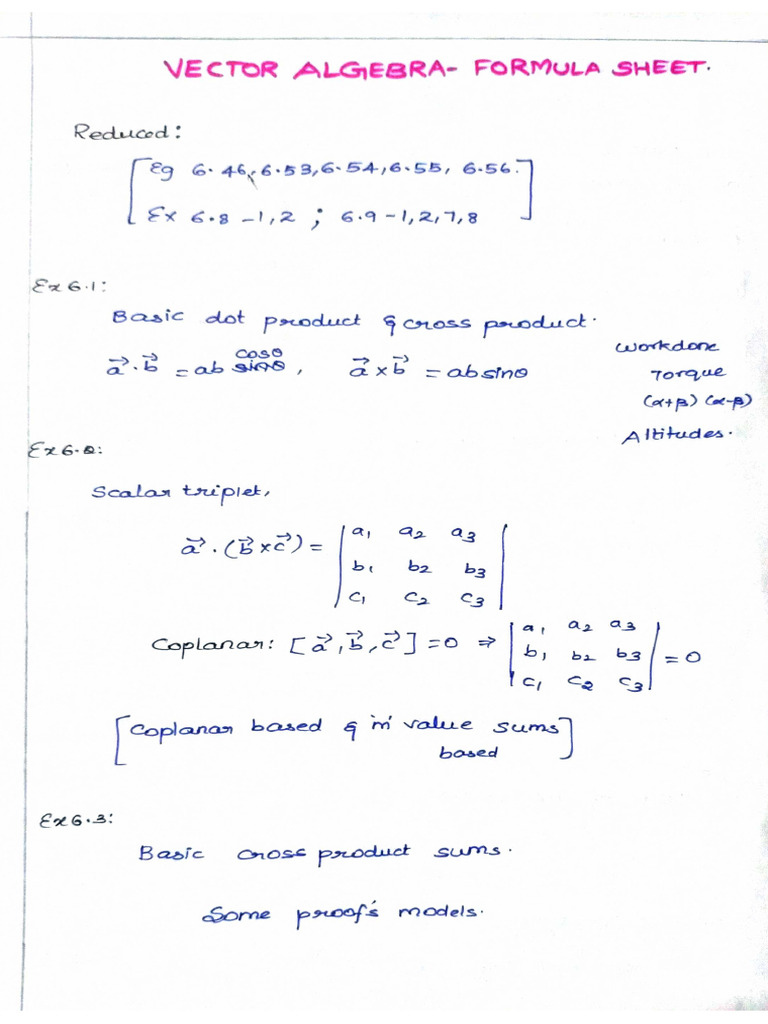 VECTOR ALGEBRA- FORMULA SHEET.
Reduced:
[Eg 6.46, 6.53, 6.54, 6.55, 6.56.
Ex 6.8 -1,2 ; 6.9 -1,2,7,8]
Ex 6.1:
Basic dot product & cross product.
a⃗.b⃗ = ab cosθ, a⃗ x b⃗ = ab sinθ
Workdone
Torque
(α+β) (α-β)
Altitudes.
Ex 6.2:
Scalar triplet,
a⃗.(b⃗ x c⃗) = | a1 a2 a3
b1 b2 b3
c1 c2 c3 |
Coplanar: [a⃗, b⃗, c⃗] = 0 ⇒ | a1 a2 a3
b1 b2 b3 | = 0
c1 c2 c3
[Coplanar based & 'm' value sums]
based
Ex 6.3:
Basic cross product sums.
Some proof's models.